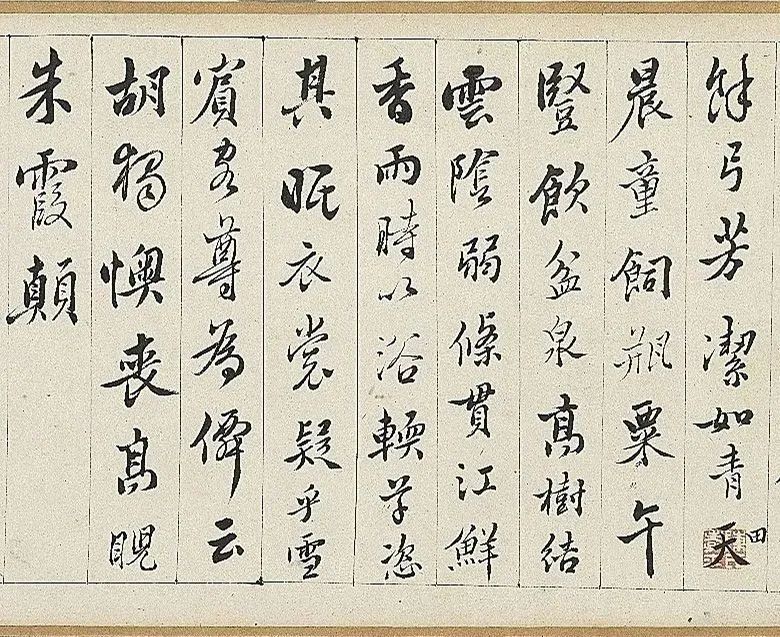 餘弓芳潔如青天田
晨童飼瓶粟午
豎飲盆泉高樹結
雲陰弱條貫江鮮
香雨時以浴輭草恣
其眠衣裳疑乎雪
賓客尊為僊云
胡獨懊喪高睨
朱霞顛